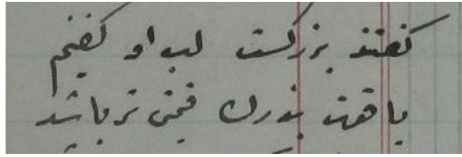 گفتند بزرگست لب او گفتم
یاقوت بزرگ قیمتی تر باشد